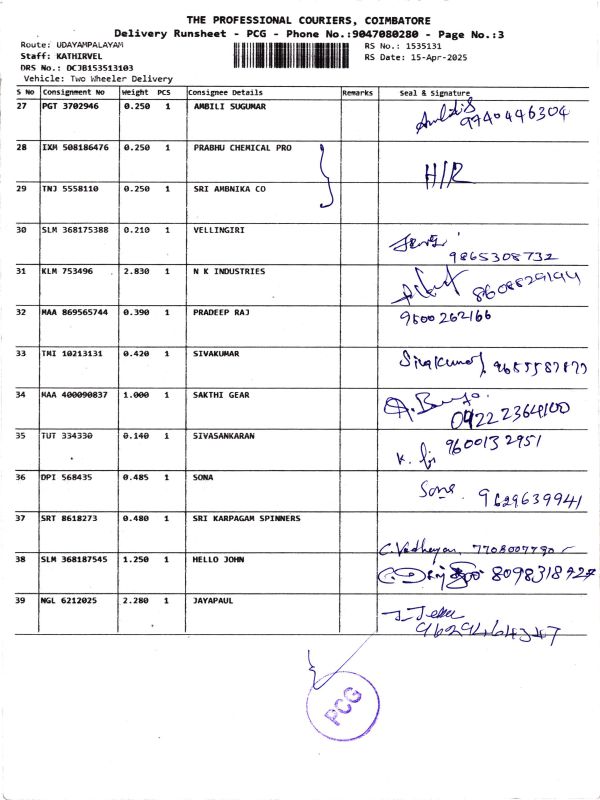 THE PROFESSIONAL COURIERS, COIMBATORE
Delivery Runsheet - PCG - Phone No.:9047080280 - Page No.:3
Route: UDAYAMPALAYAM RS No.: 1535131
Staff: KATHIRVEL RS Date: 15-Apr-2025
DRS No.: DCJB153513103
Vehicle: Two Wheeler Delivery
S No Consignment No Weight PCS Consignee Details Remarks Seal & Signature
27 PGT 3702946 0.250 1 AMBILI SUGUMAR
9940446304
28 IXM 508186476 0.250 1 PRABHU CHEMICAL PRO
H/R
29 TNJ 5558110 0.250 1 SRI AMBNIKA CO
30 SLM 368175388 0.210 1 VELLINGIRI
9865308732
31 KLM 753496 2.830 1 N K INDUSTRIES
8608829194
32 MAA 869565744 0.390 1 PRADEEP RAJ 9500262166
33 TMI 10213131 0.420 1 SIVAKUMAR
Sivakumar
34 MAA 400090837 1.000 1 SAKTHI GEAR
04222364100
35 TUT 334330 0.140 1 SIVASANKARAN
9600132951
36 DPI 568435 0.485 1 SONA
Sona 9629639941
37 SRT 8618273 0.480 1 SRI KARPAGAM SPINNERS
38 SLM 368187545 1.250 1 HELLO JOHN
8098318927
39 NGL 6212025 2.280 1 JAYAPAUL
PCG